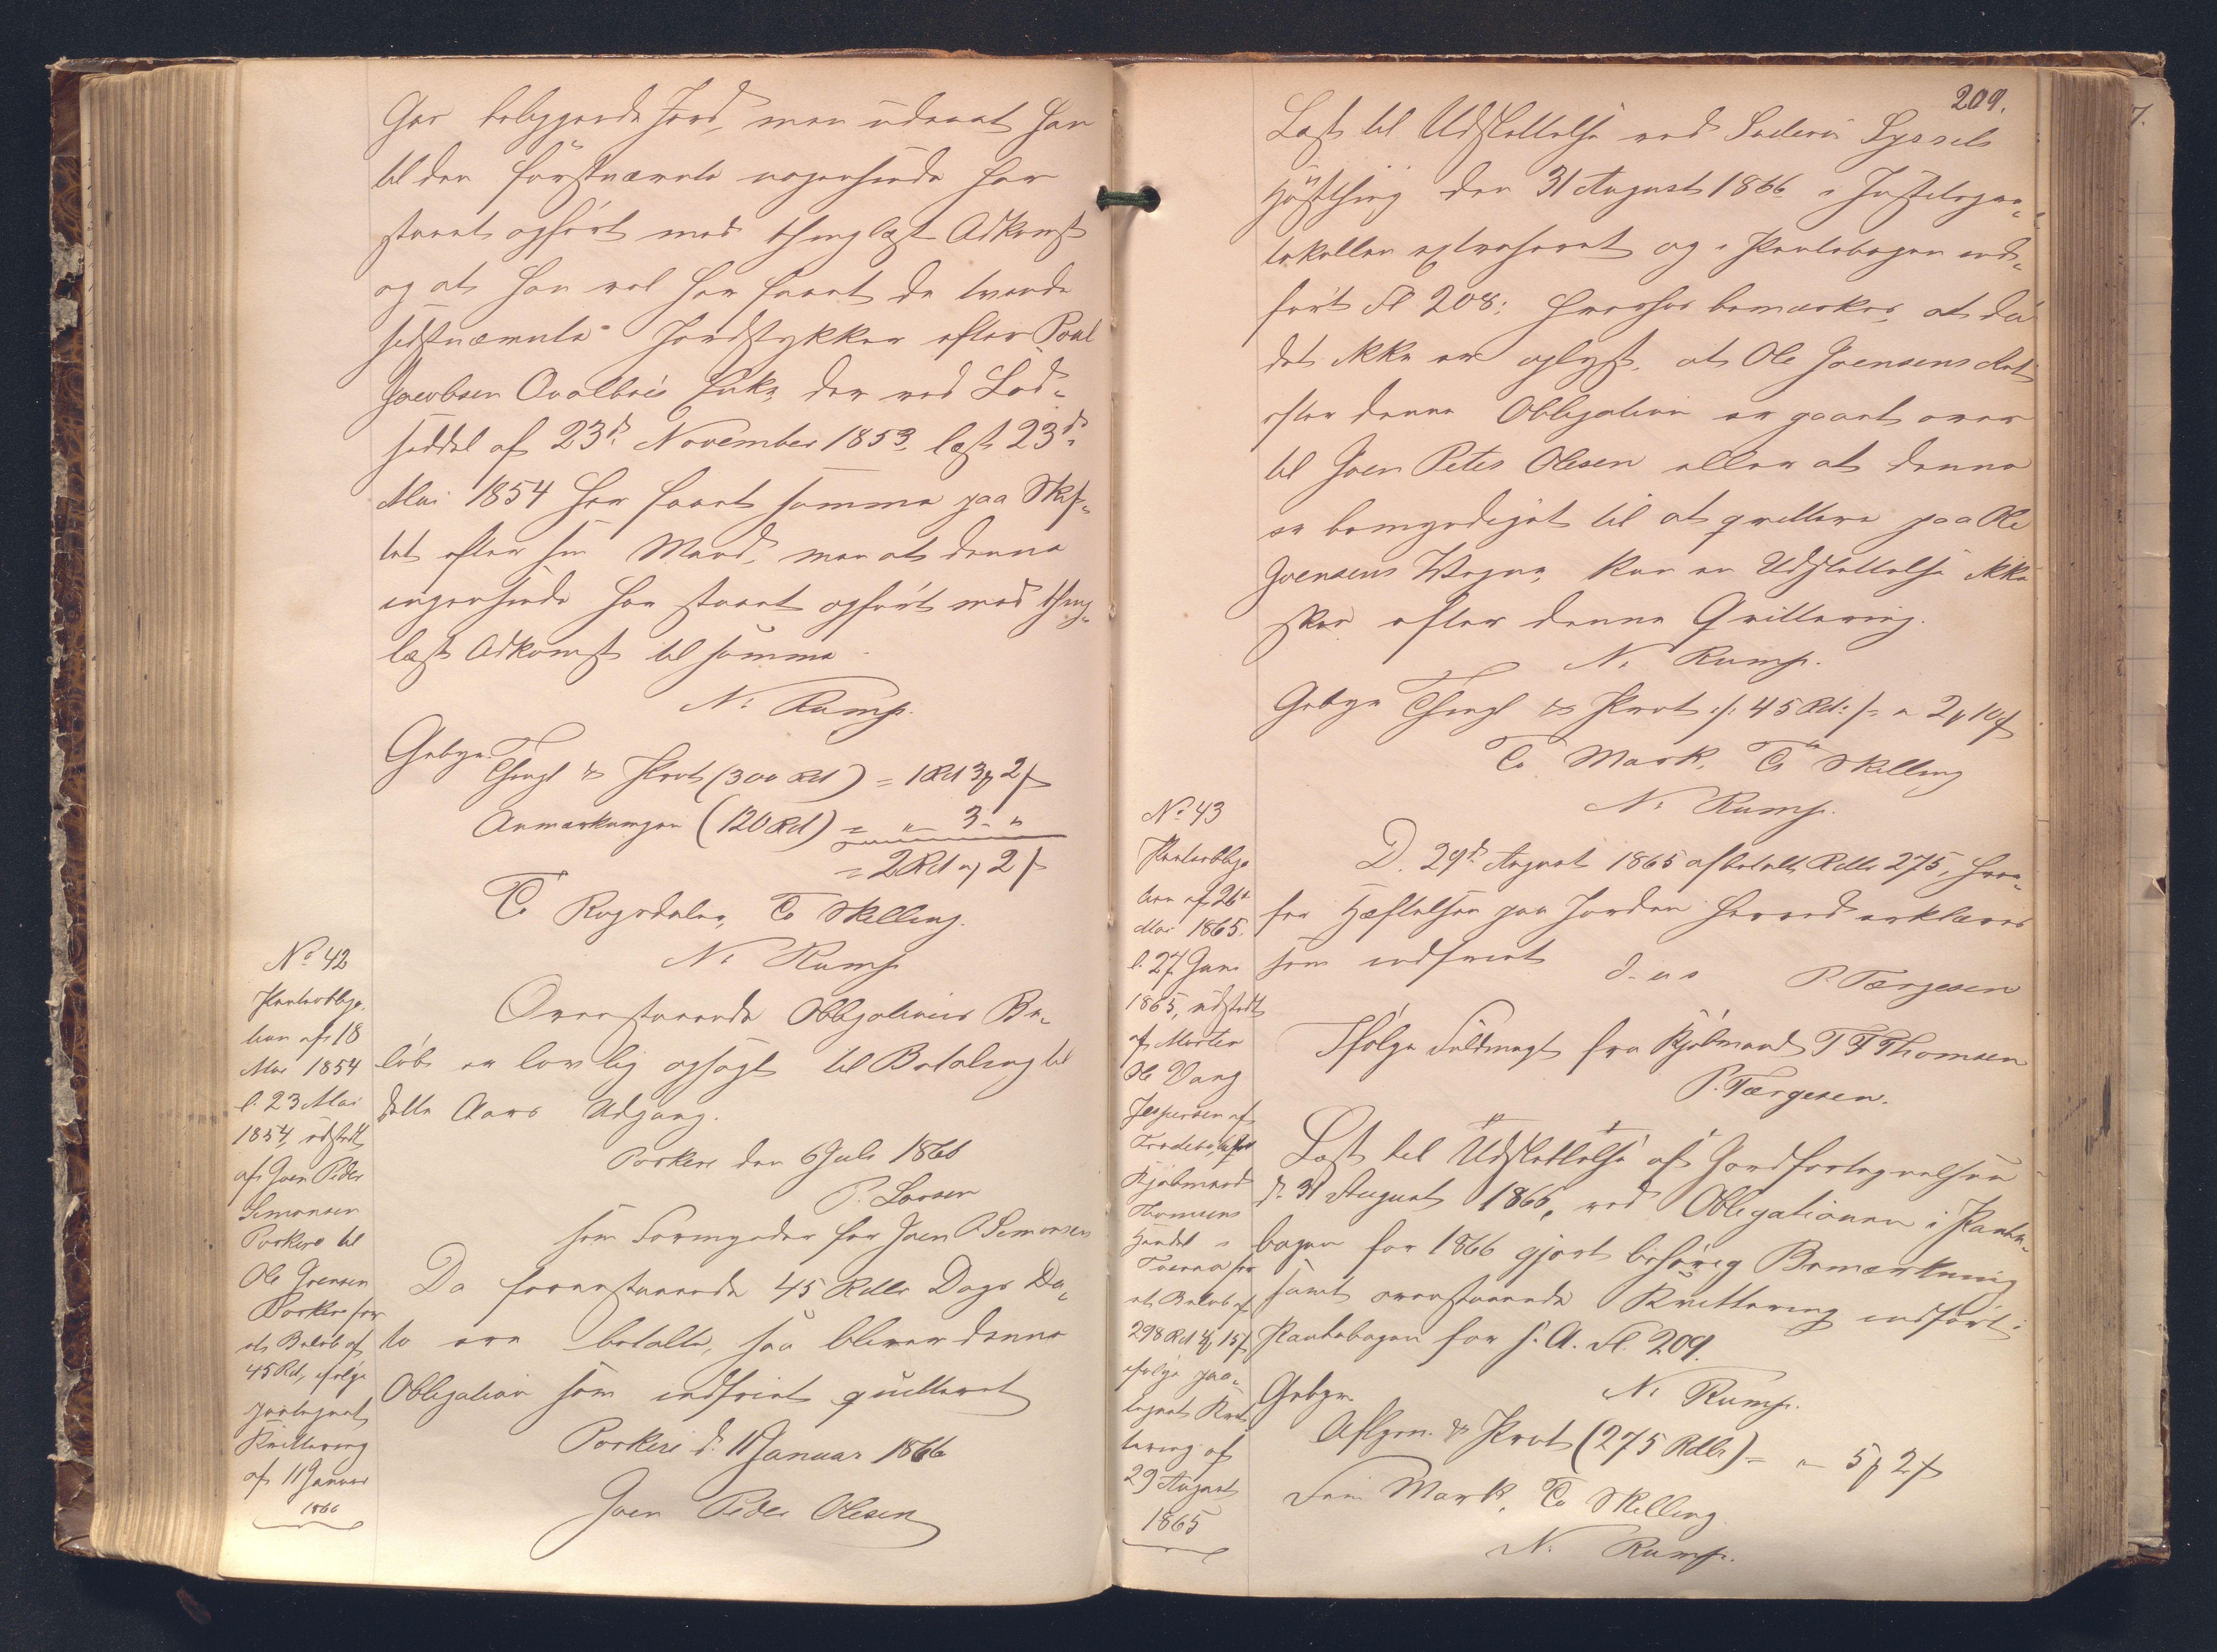 Gjer bebyggende Jord, men uden at han
til den förstnævnte nogensinde har
staaet opfört med thinglæst Adkomst
og at han vel har faaet de tvende
sidstnævnte Jordstykker efter Poul
Jacobsen Qvalböes Enke, der ved Lod-
seddel af 23d November 1853, læst 23d
Mai 1854 har faaet samme paa Skif-
tet efter sin Mand, men at denne
ingensinde har staaet opfört med thing-
læst Adkomst til samme.
N. Rump.
Gebyr
Thingl & Prot (300 Rd) = 1Rd 3₰ 2ß
Anmærkningen (120 Rd) = " - 3 - "
= 2 Rd " 2ß
To Rigsdaler, To Skilling.
N. Rump
No 42
Panteobliga-
tion af 18
Mai 1854
l. 23 Mai
1854, udstedt
af Joen Peder
Simonsen
Porkere til
Ole Joensen
Porkere for
et Belöb af
45 Rd, ifölge
paategnet
Kvittering
af 11 Januar
1866
Ovenstaaende Obligations Be-
löb er lovlig opsagt til Betaling til
dette Aars Udgang.
Porkere den 6 Juli 1860
P. Larsen
som Formynder for Joen P. Simonsen
Da foranstaaende 45 Rdlr Dags Da-
to ere betalte, saa bliver denne
Obligation som indfriet quitteret
Porkere d. 11 Januar 1866
Joen Peder Olesen
209.
Læst til Udslettelse ved Suderö Syssels
Höstthing den 31 August 1866 i Justitspro-
tokollen extraheret og i Pantebogen ind-
fört Fl 208; hvorhos bemærkes, at da
det ikke er oplyst, at Ole Joensens Ret
efter denne Obligation er gaaet over
til Joen Peter Olesen eller at denne
er bemyndiget til at qvittere paa Ole
Joensens Vegne, kan en Udslettelse ikke
skee efter denne Qvittering.
N. Rump.
Gebyr Thingl & Prot ./. 45 Rd: /= " 2₰ 10ß
To Mark, Ti Skilling
N. Rump.
No 43
Panteobliga-
tion af 26d
Mai 1865.
l. 27 Juni
1865, udstedt
af Morten
Ole Vang
Jespersen af
Frodebö, til
Kjöbmand
Thomsens
Handel i
Tveraa for
et Belöb af
298 Rd 4₰ 15ß
ifölge paa-
tegnet Kvit-
tering af
29 August
1865
D. 29d August 1865 afbetalt Rdlr 275, hvor-
for Hæftelsen paa Jorden herved erklæres
som indfriet d. u. s P. Færgesen
Ifölge Fuldmagt fra Kjöbmand T F Thomsen
P. Færgesen.
Læst til Udslettelse af Jordfortegnelsen
d. 31 August 1866, ved Obligationen i Pante-
bogen for 1866 gjort behörig Bemærkning
samt ovenstaaende Kvittering indfört i
Pantebogen for s. A. Fl. 209.
N. Rump.
Gebyr.
Aflysn. & Prot (275 Rdlr) = " - 5₰ 2ß
Fem Mark, To Skilling
N. Rump.